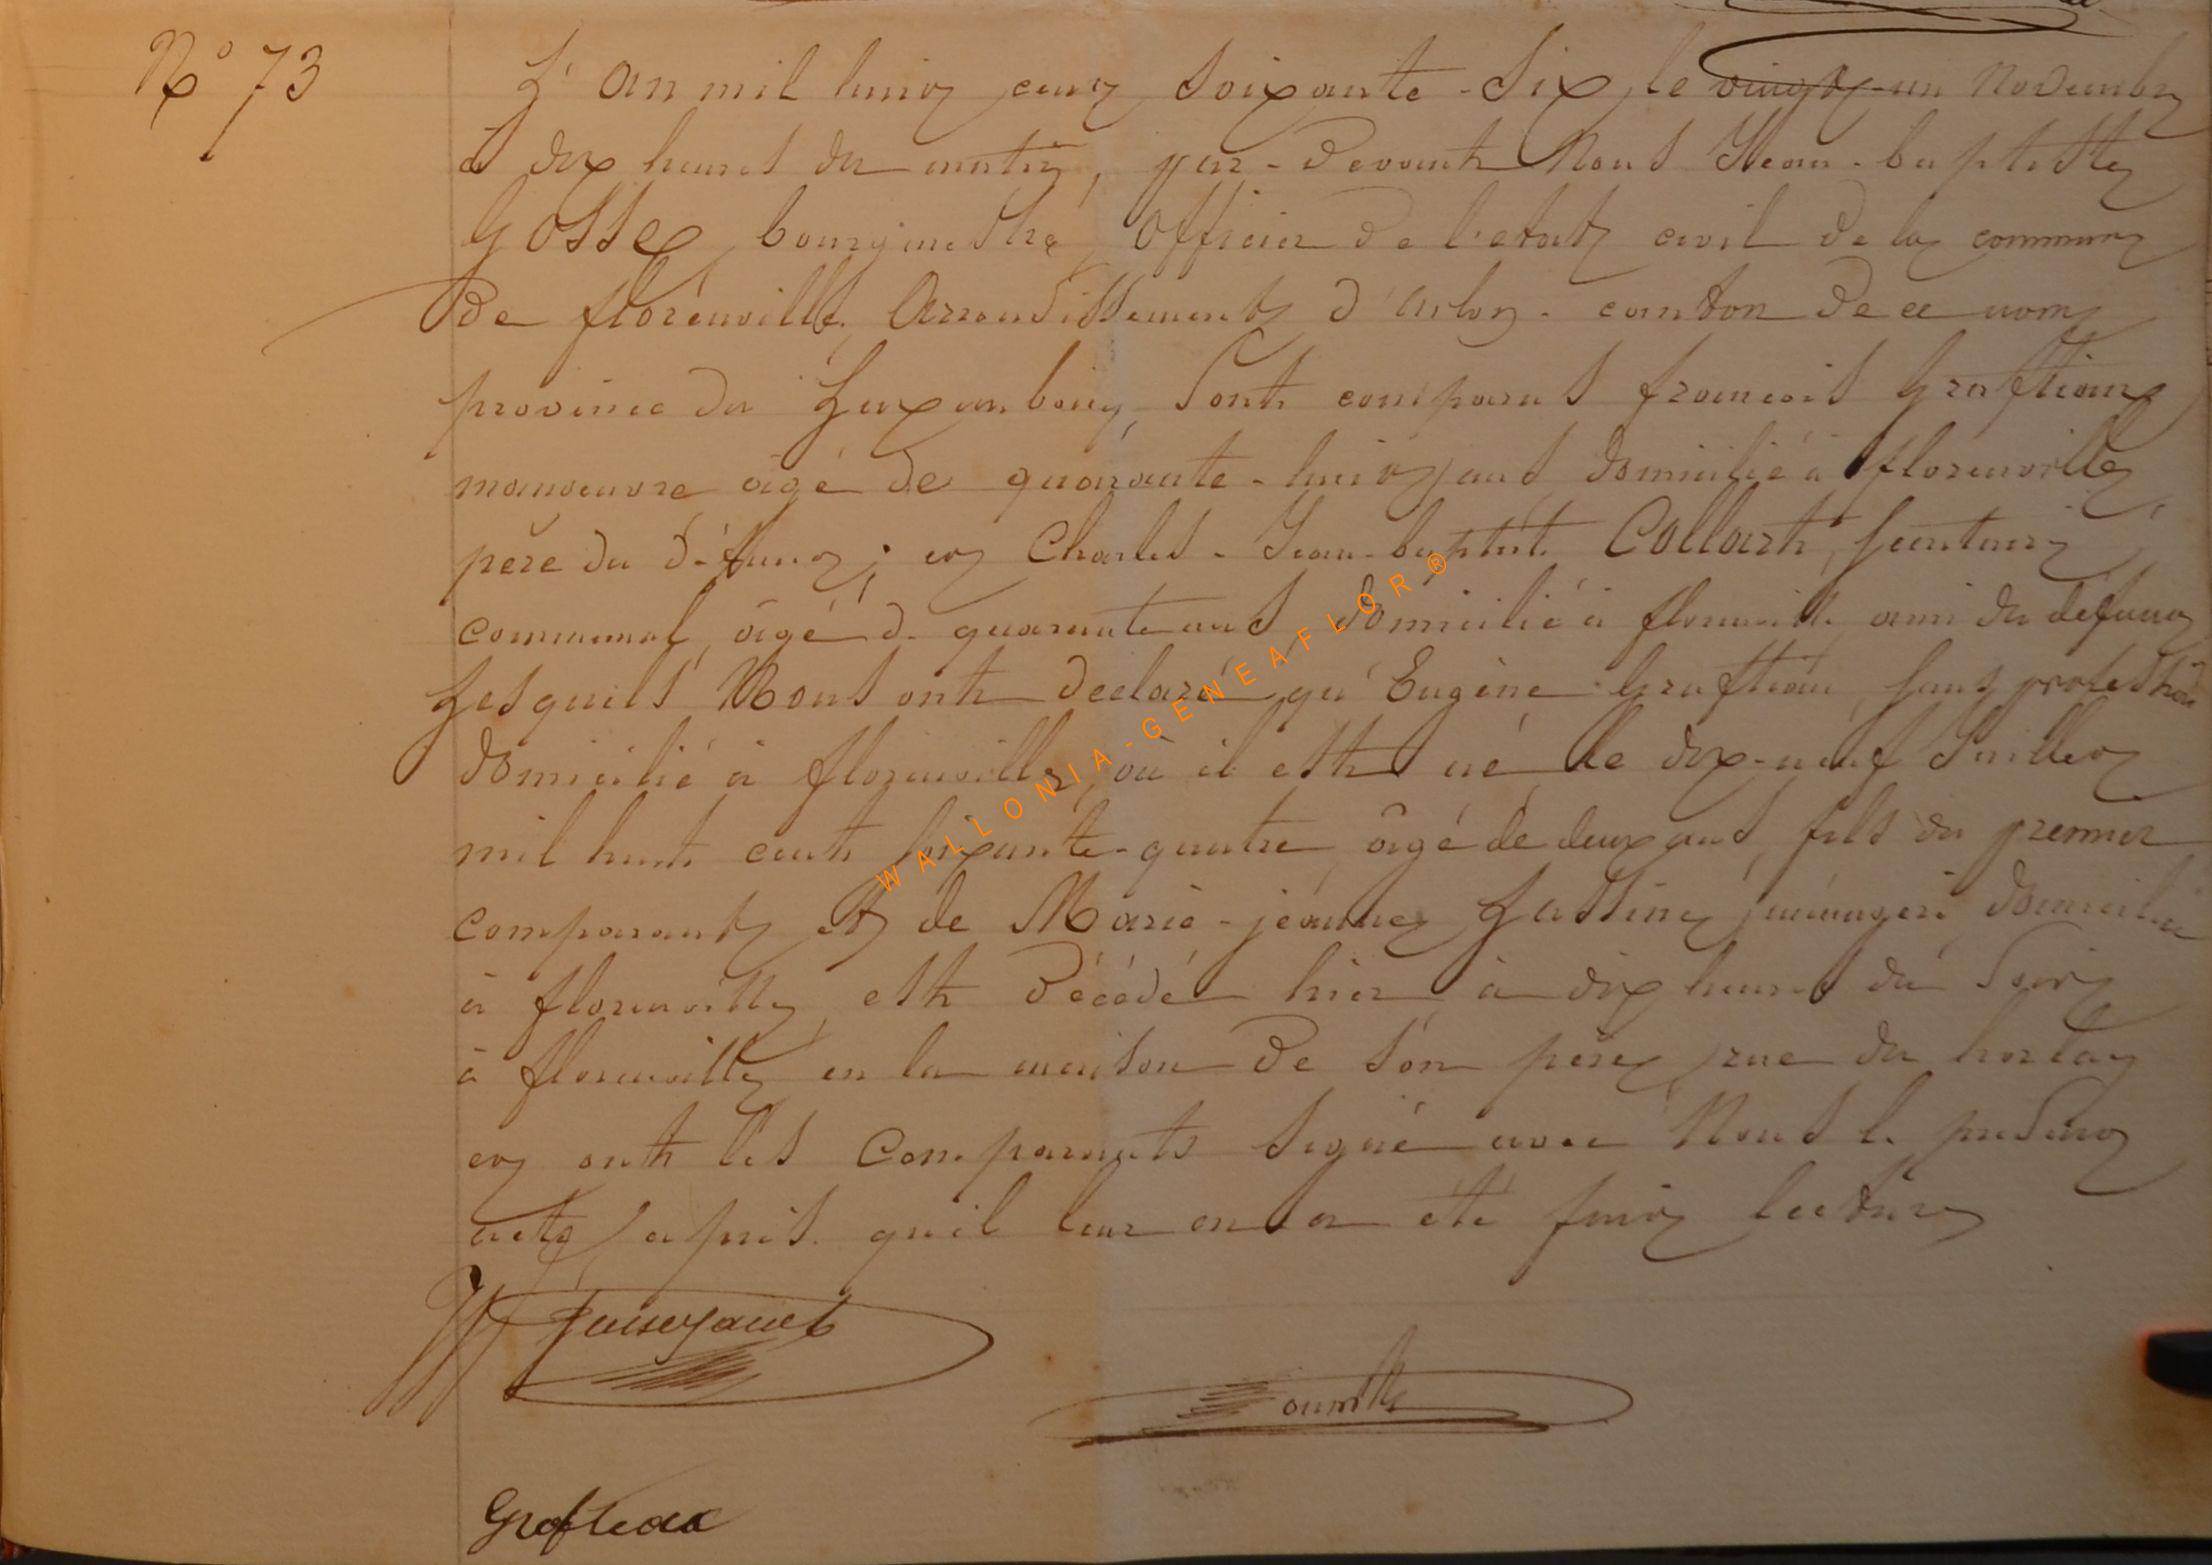 N° 73
L'an mil huit cent soixante-six, le vingt-un Novembre
à dix heures du matin, par-devant Nous Jean-baptiste
Gosse, bourgmestre, officier de l'etat civil de la commune
de florenville, Arrondissement d'arlon, canton de ce nom
province du Luxembourg, Sont comparus francois Grafteaux
manoeuvre âgé de quarante-huit ans, domicilié à florenville
père du défunt; et Charles-Jean-baptiste Collart, Secrétaire
communal, âgé de quarante ans, domicilié à florenville, ami du défunt
Lesquels Nous ont declaré qu'Eugène Grafteau, sans profession
domicilié à florenville, où il est né le dix-neuf Juillet
mil huit cent soixante-quatre, âgé de deux ans, fils du premier
comparant et de Marie-jeanne Lassine, ménagère, domiciliée
à florenville, est décédé hier à dix heures du Soir
à florenville en la maison de son père, rue du
et ont les Comparants signé avec Nous le présent
acte, après qu'il leur en a été fait lecture
Grafteaux
WALLONIA-GENEAFLOR®